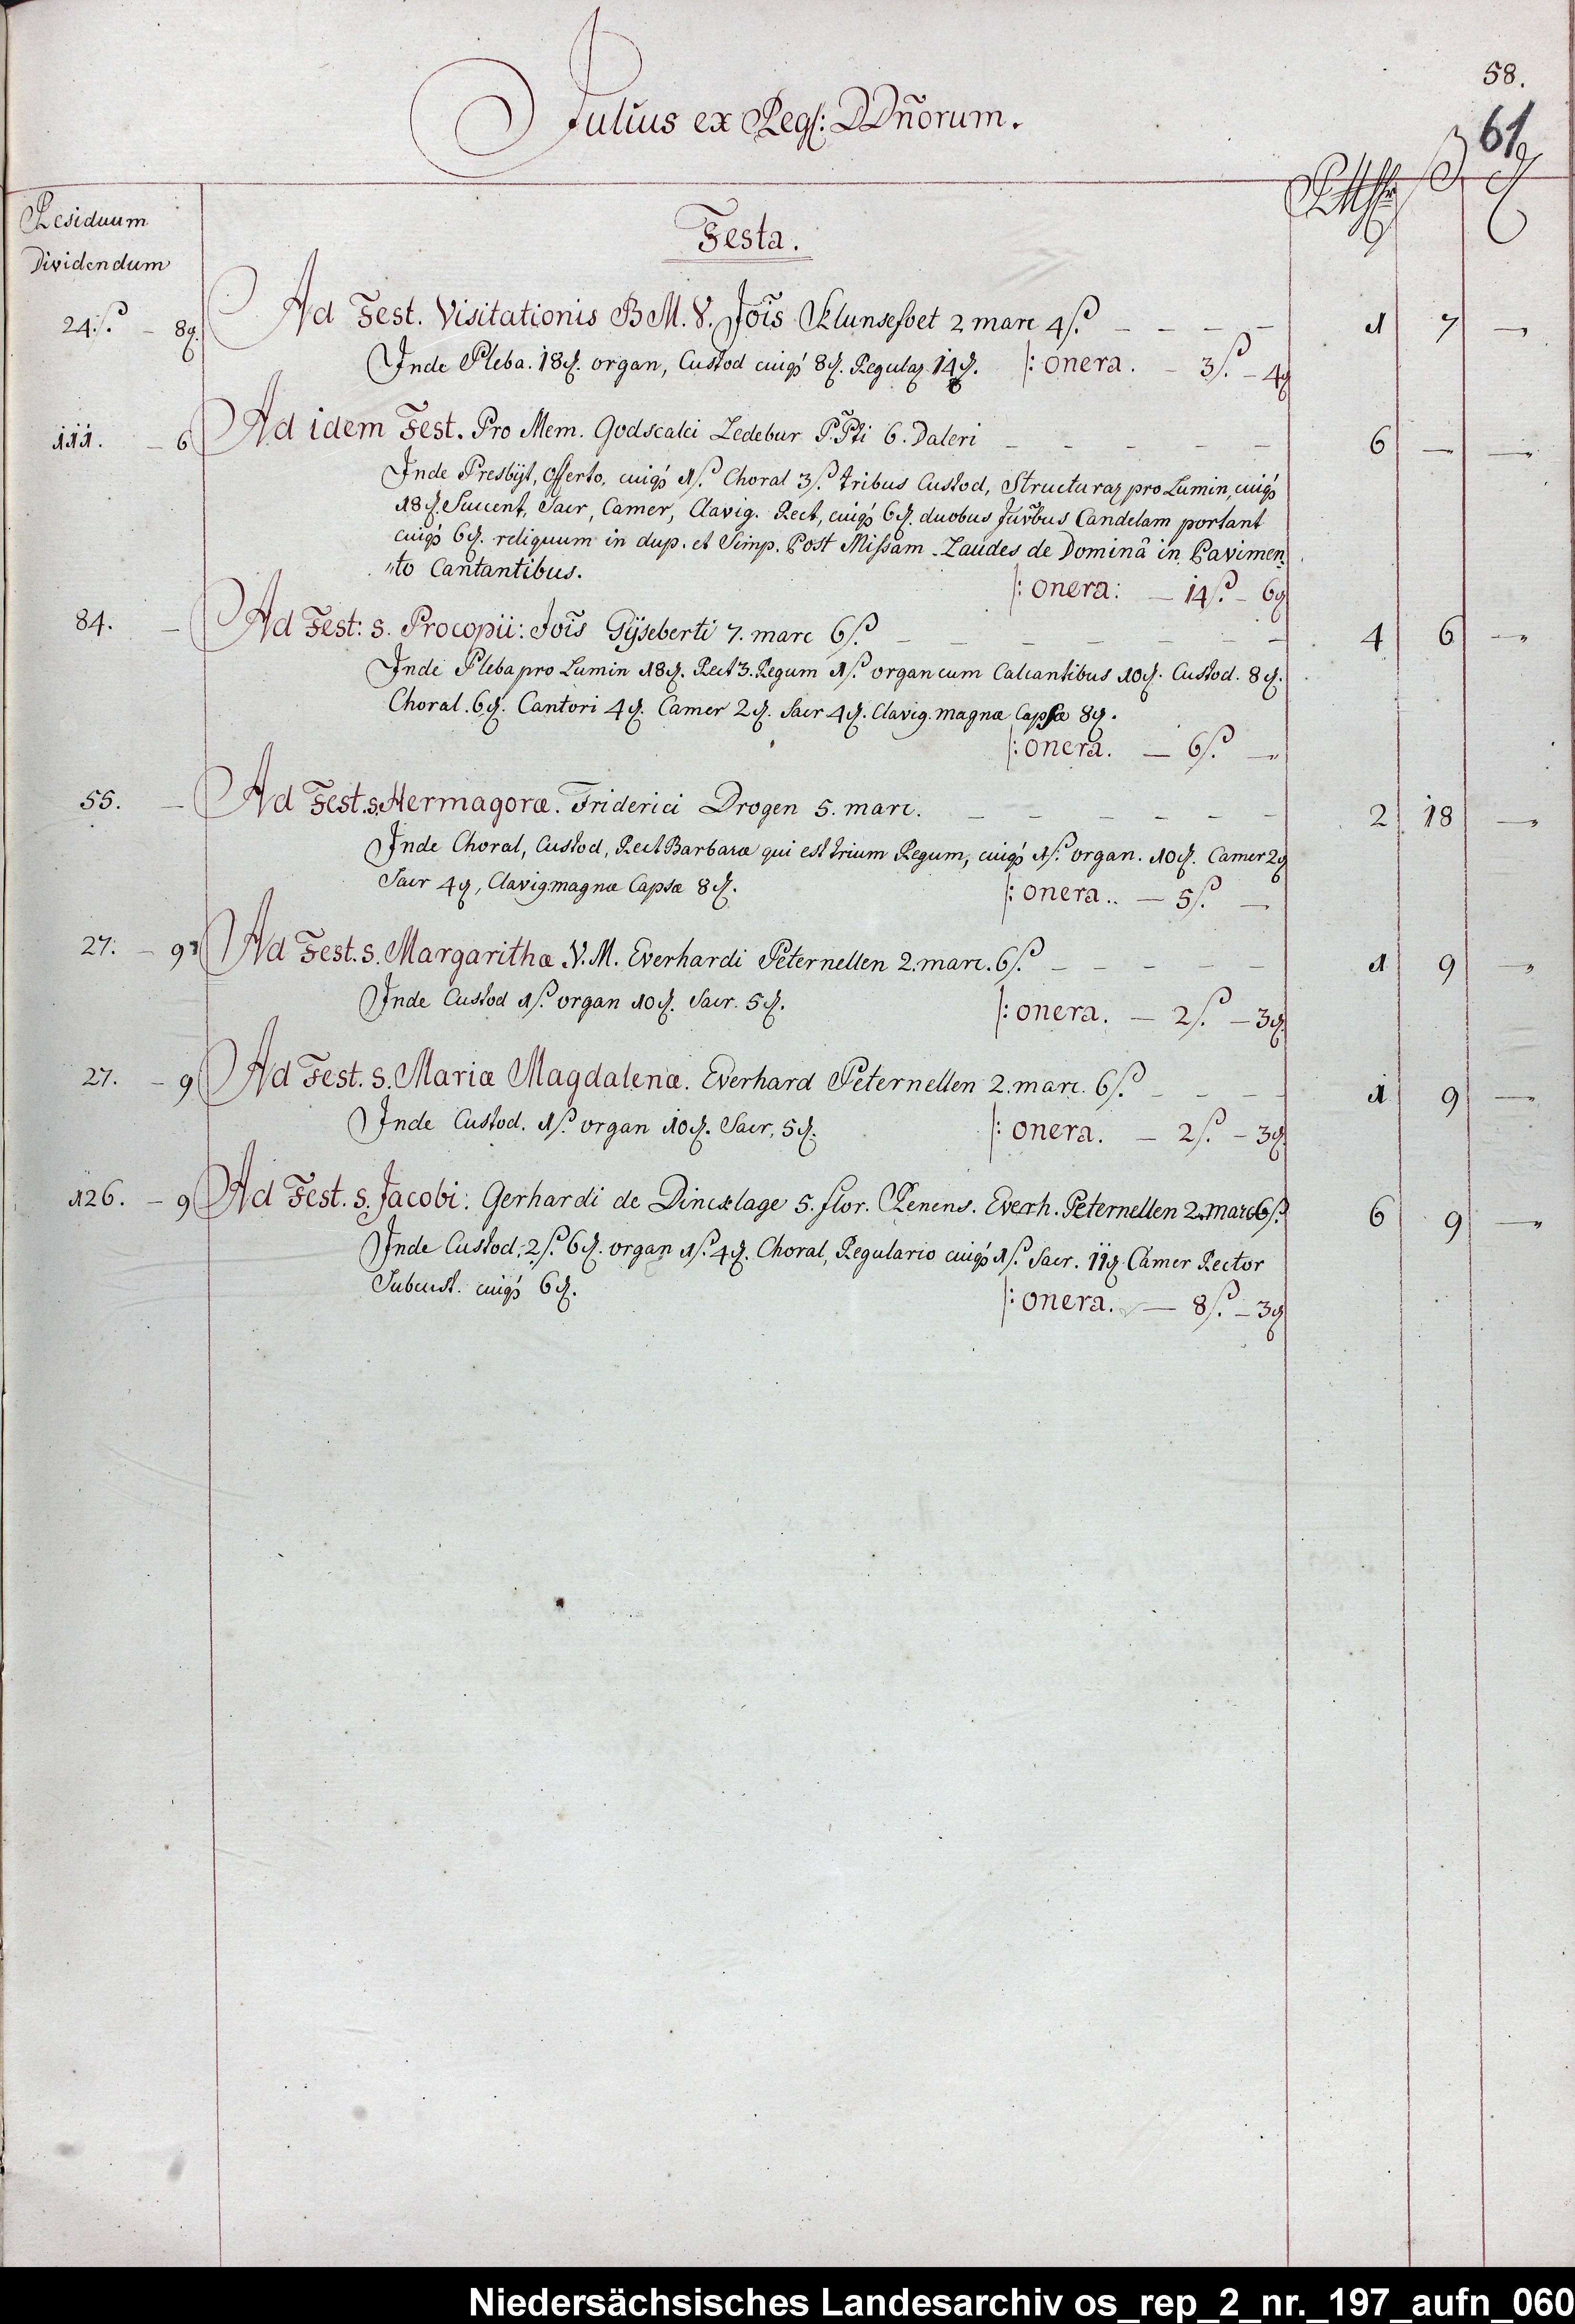 58.
Julius ex Regs: DDnōrum.
61
Residuum
Dividendum
Festa.
Rthlr ß ₰
24.ß. – 8₰. Ad Fest. Visitationis B M. V. Jōis Klunsefoet 2 marc 4ß. – – – – 1 7 —
Inde Pleba. 18₰. organ, Custod cuiq́ 8₰. Regular 14₰. |: onera. – 3ß. – 4₰
111. – 6 Ad idem Fest. Pro Mem. Godscalci Ledebur P.Pti 6. Daleri – – – – – – 6 — —
Inde Presbyt, Offerto, cuiq́ 1ß. Choral 3ß. tribus Custod, Structurar pro Lumin, cuiq́
18₰. Succent, Sacr, Camer, Clavig. Rect, cuiq́ 6₰. duobus Juvbus Candelam portant
cuiq́ 6₰. reliquum in dup. et Simp. Post Missam Laudes de Dominâ in Pavimen:
"to Cantantibus.
|: onera: — 14ß. – 6₰
84. — Ad Fest: s. Procopii: Jōis Gÿseberti 7. marc 6ß. – – – – – – – 4 6 —
Inde Pleba pro Lumin 18₰. Rect 3. Regum 1ß. organ cum Calcantibus 10₰. Custod. 8₰.
Choral. 6₰. Cantori 4₰. Camer 2₰. Sacr 4₰. Clavig. magnæ Capsæ 8₰.
|: onera. — 6ß. —
55. — Ad Fest. s. Hermagoræ. Friderici Drogen 5. marc. – – – – – – 2 18 —
Inde Choral, Custod, Rect Barbaræ qui est trium Regum, cuiq́ 1ß. organ. 10₰. Camer 2₰
Sacr 4₰, Clavig magnæ Capsæ 8₰. |: onera.. — 5ß. —
27: – 9 Ad Fest. s. Margarithæ V. M. Everhardi Peternellen 2. marc. 6ß. – – – – – – 1 9 —
Inde Custod 1ß. organ 10₰. Sacr. 5₰. |: onera. — 2ß. – 3₰.
27. – 9 Ad Fest. s. Mariæ Magdalenæ. Everhard Peternellen 2. marc. 6ß. – – – – 1 9 —
Inde Custod. 1ß. organ 10₰. Sacr, 5₰. |: onera. – 2ß. – 3₰.
126. – 9 Ad Fest. s. Jacobi: Gerhardi de Dincklage 5. flor. Renens. Everh. Peternellen 2. marc 6ß. 6 9 —
Inde Custod, 2ß. 6₰. organ 1ß. 4₰. Choral, Regulario cuiq́ 1ß. Sacr. 11₰ Camer Rector
Subcust. cuiq́ 6₰. |: onera. — 8ß. – 3₰
Niedersächsisches Landesarchiv os_rep_2_nr._197_aufn_060